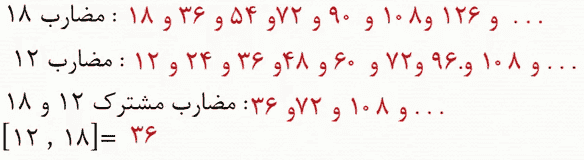 مضارب ۱۸ : ۱۸ و ۳۶ و ۵۴ و ۷۲ و ۹۰ و ۱۰۸ و ۱۲۶ و ...
مضارب ۱۲ : ۱۲ و ۲۴ و ۳۶ و ۴۸ و ۶۰ و ۷۲ و ۹۶ و. ۱۰۸ و ...
مضارب مشترک ۱۲ و ۱۸ : ۳۶ و ۷۲ و ۱۰۸ و ...
[۱۲ , ۱۸]= ۳۶